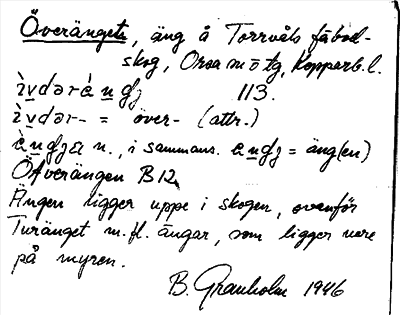 Överänget, äng å Torrvåls fäbod-
skog, Orsa m o tg, Kopparb. l.
ı̀vdərà ng 113.
ı̀vdər- = över- (attr.)
n., i sammans. = äng(en)
Öfverängen B 12
Ängen ligger uppe i skogen, ovanför
Turänget m.fl. ängar, som ligger nere
på myren.
B. Granholm 1946